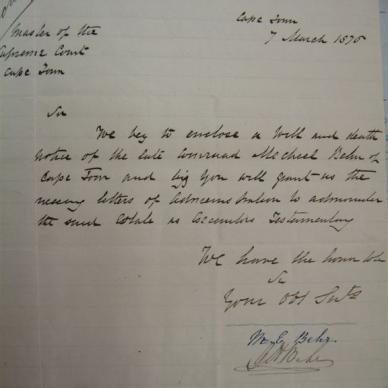 Cape Town
7 March 1875
Master of the
Supreme Court
Cape Town
Sir
We beg to enclose a Will and death
notice of the late Conraad Michiel Behr of
Cape Town and beg you will grant us the
necessary letters of Administration to administer
the said Estate as Executors Testamentary
We have the honor to be
Sir
Your Obt Servts
M. C. Behr
Behr